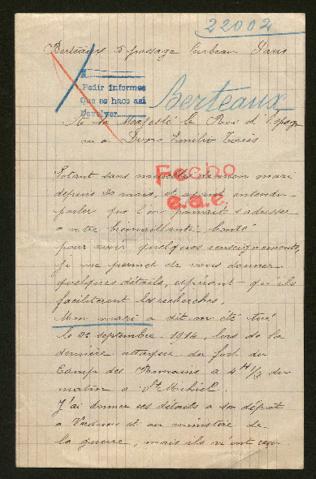 22002
Berteaux 5 passage Corbeau Paris
R
Pedir informes
Que se haco asi
Devolver
Berteaux
A sa Majesté le Roi d'Espagne
Fecho
e.a.e.
Etant sans nouvelles de mon mari
depuis 20 mois, et ayant entendu
parler que l'on pouvait s'adresser
a votre bienveillante bonté
pour avoir quelques renseignements,
je me permet de vous donner
quelques détails, espérant qu'ils
faciliteront les recherches.
Mon mari a dit-on été tué
le 26 septembre 1914, lors de la
dernière attaque du fort du
Camp des Romains à 4 H 1/2 du
matin a St Mihiel.
J'ai donner ces détails a son dépôt
a Verdun et au ministère de
la guerre, mais ils n'ont